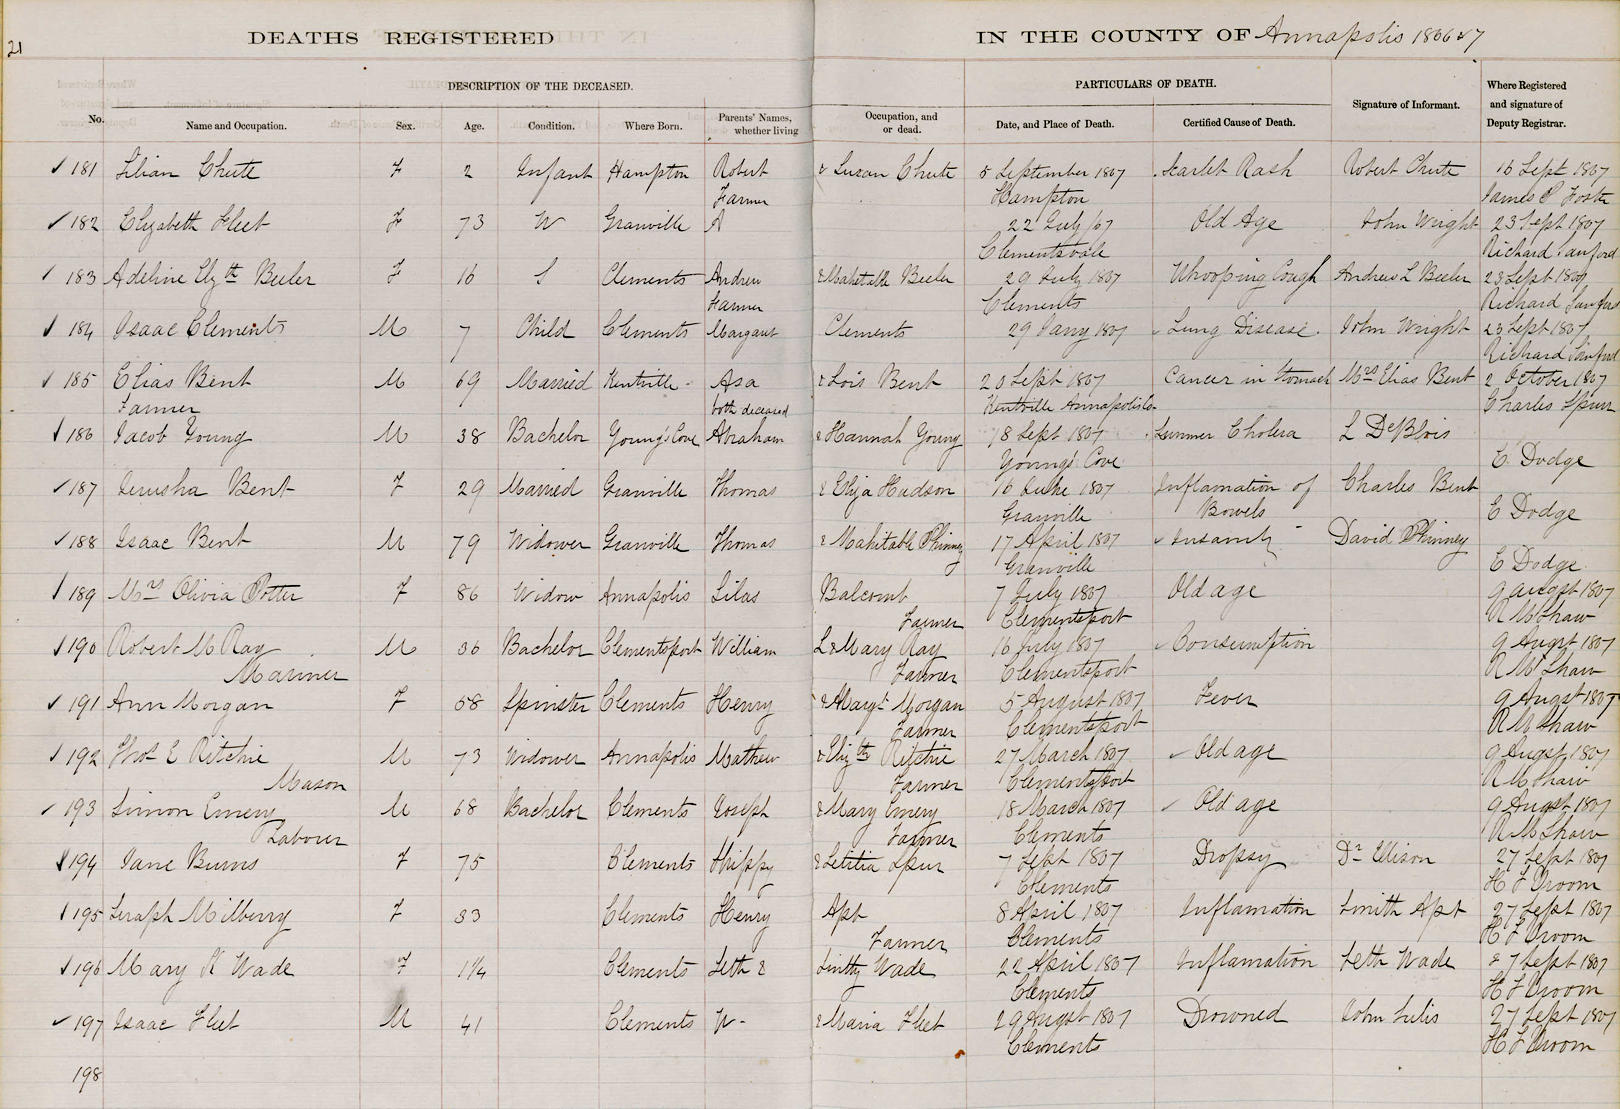 21
DEATHS REGISTERED IN THE COUNTY OF Annapolis 1866 & 7
DESCRIPTION OF THE DECEASED. PARTICULARS OF DEATH.
No. Name and Occupation. Sex. Age. Condition. Where Born. Parents' Names, whether living Occupation, and or dead. Date, and Place of Death. Certified Cause of Death. Signature of Informant. Where Registered and signature of Deputy Registrar.
181 Lilian Chute F 2 Infant Hampton Robert & Susan Chute 5 September 1867 Scarlet Rash Robert Chute 16 Sept 1867
Farmer Hampton James P Foster
182 Elizabeth Fleet F 73 W Granville A 22 July /67 Old Age John Wright 23 Sept 1867
Clementsvale Richard Sanford
183 Adeline Elyth Beeler F 16 S Clements Andrew & Mahetable Beeler 29 July 1867 Whooping Cough Andrew L Beeler 23 Sept 1867
Farmer Clements Richard Sanford
184 Isaac Clements M 7 Child Clements Margaret Clements 29 Jany 1867 Lung Disease. John Wright 23 Sept 1867
Richard Sanford
185 Elias Bent M 69 Married Kentville - Asa & Lois Bent 20 Sept 1867 Cancer in Stomach Mrs Elias Bent 2 October 1867
Farmer both deceased Kentville Annapolis Co. Charles Spurr
186 Jacob Young M 38 Bachelor Young's Cove Abraham & Hannah Young 18 Sept 1867 Summer Cholera L DeBlois
Young's Cove E Dodge
187 Jerusha Bent F 29 Married Granville Thomas & Eliza Hudson 16 June 1867 Inflamation of Charles Bent
Granville Bowels E Dodge
188 Isaac Bent M 79 Widower Granville Thomas & Mahitable Phinney 17 April 1867 Insanity David Phinney
Granville E Dodge
189 Mrs Olivia Potter F 86 Widow Annapolis Silas Balcomb 7 July 1867 Old age 9 August 1867
Farmer Clementsport R M Shaw
190 Robert M Ray M 36 Bachelor Clementsport William L & Mary Ray 16 July 1867 Consumption 9 Augst 1867
Mariner Farmer Clementsport R M Shaw
191 Ann Morgan F 58 Spinster Clements Henry & Margt Morgan 5 August 1867 Fever 9 Augst 1867
Farmer Clementsport R M Shaw
192 Thos E Ritchie M 73 Widower Annapolis Mathew & Elizth Ritchie 27 March 1867 Old age 9 Augst 1867
Mason Farmer Clementsport R M Shaw
193 Simon Emery M 68 Bachelor Clements Joseph & Mary Emery 18 March 1867 Old age 9 Augst 1867
Labourer Farmer Clements R M Shaw
194 Jane Burns F 75 Clements Shippy & Letitia Spur 7 Sept 1867 Dropsy Dr Ellison 27 Sept 1867
Clements H F Vroom
195 Seraph Milberry F 33 Clements Henry Apt 8 April 1867 Inflamation Smith Apt 27 Sept 1867
Farmer Clements H F Vroom
196 Mary K Wade F 1¼ Clements Seth & Wade 22 April 1867 Inflamation Seth Wade 27 Sept 1867
Clements H F Vroom
197 Isaac Fleet M 41 Clements W - & Maria Fleet 29 Augst 1867 Drowned John 27 Sept 1867
Clements H F Vroom
198